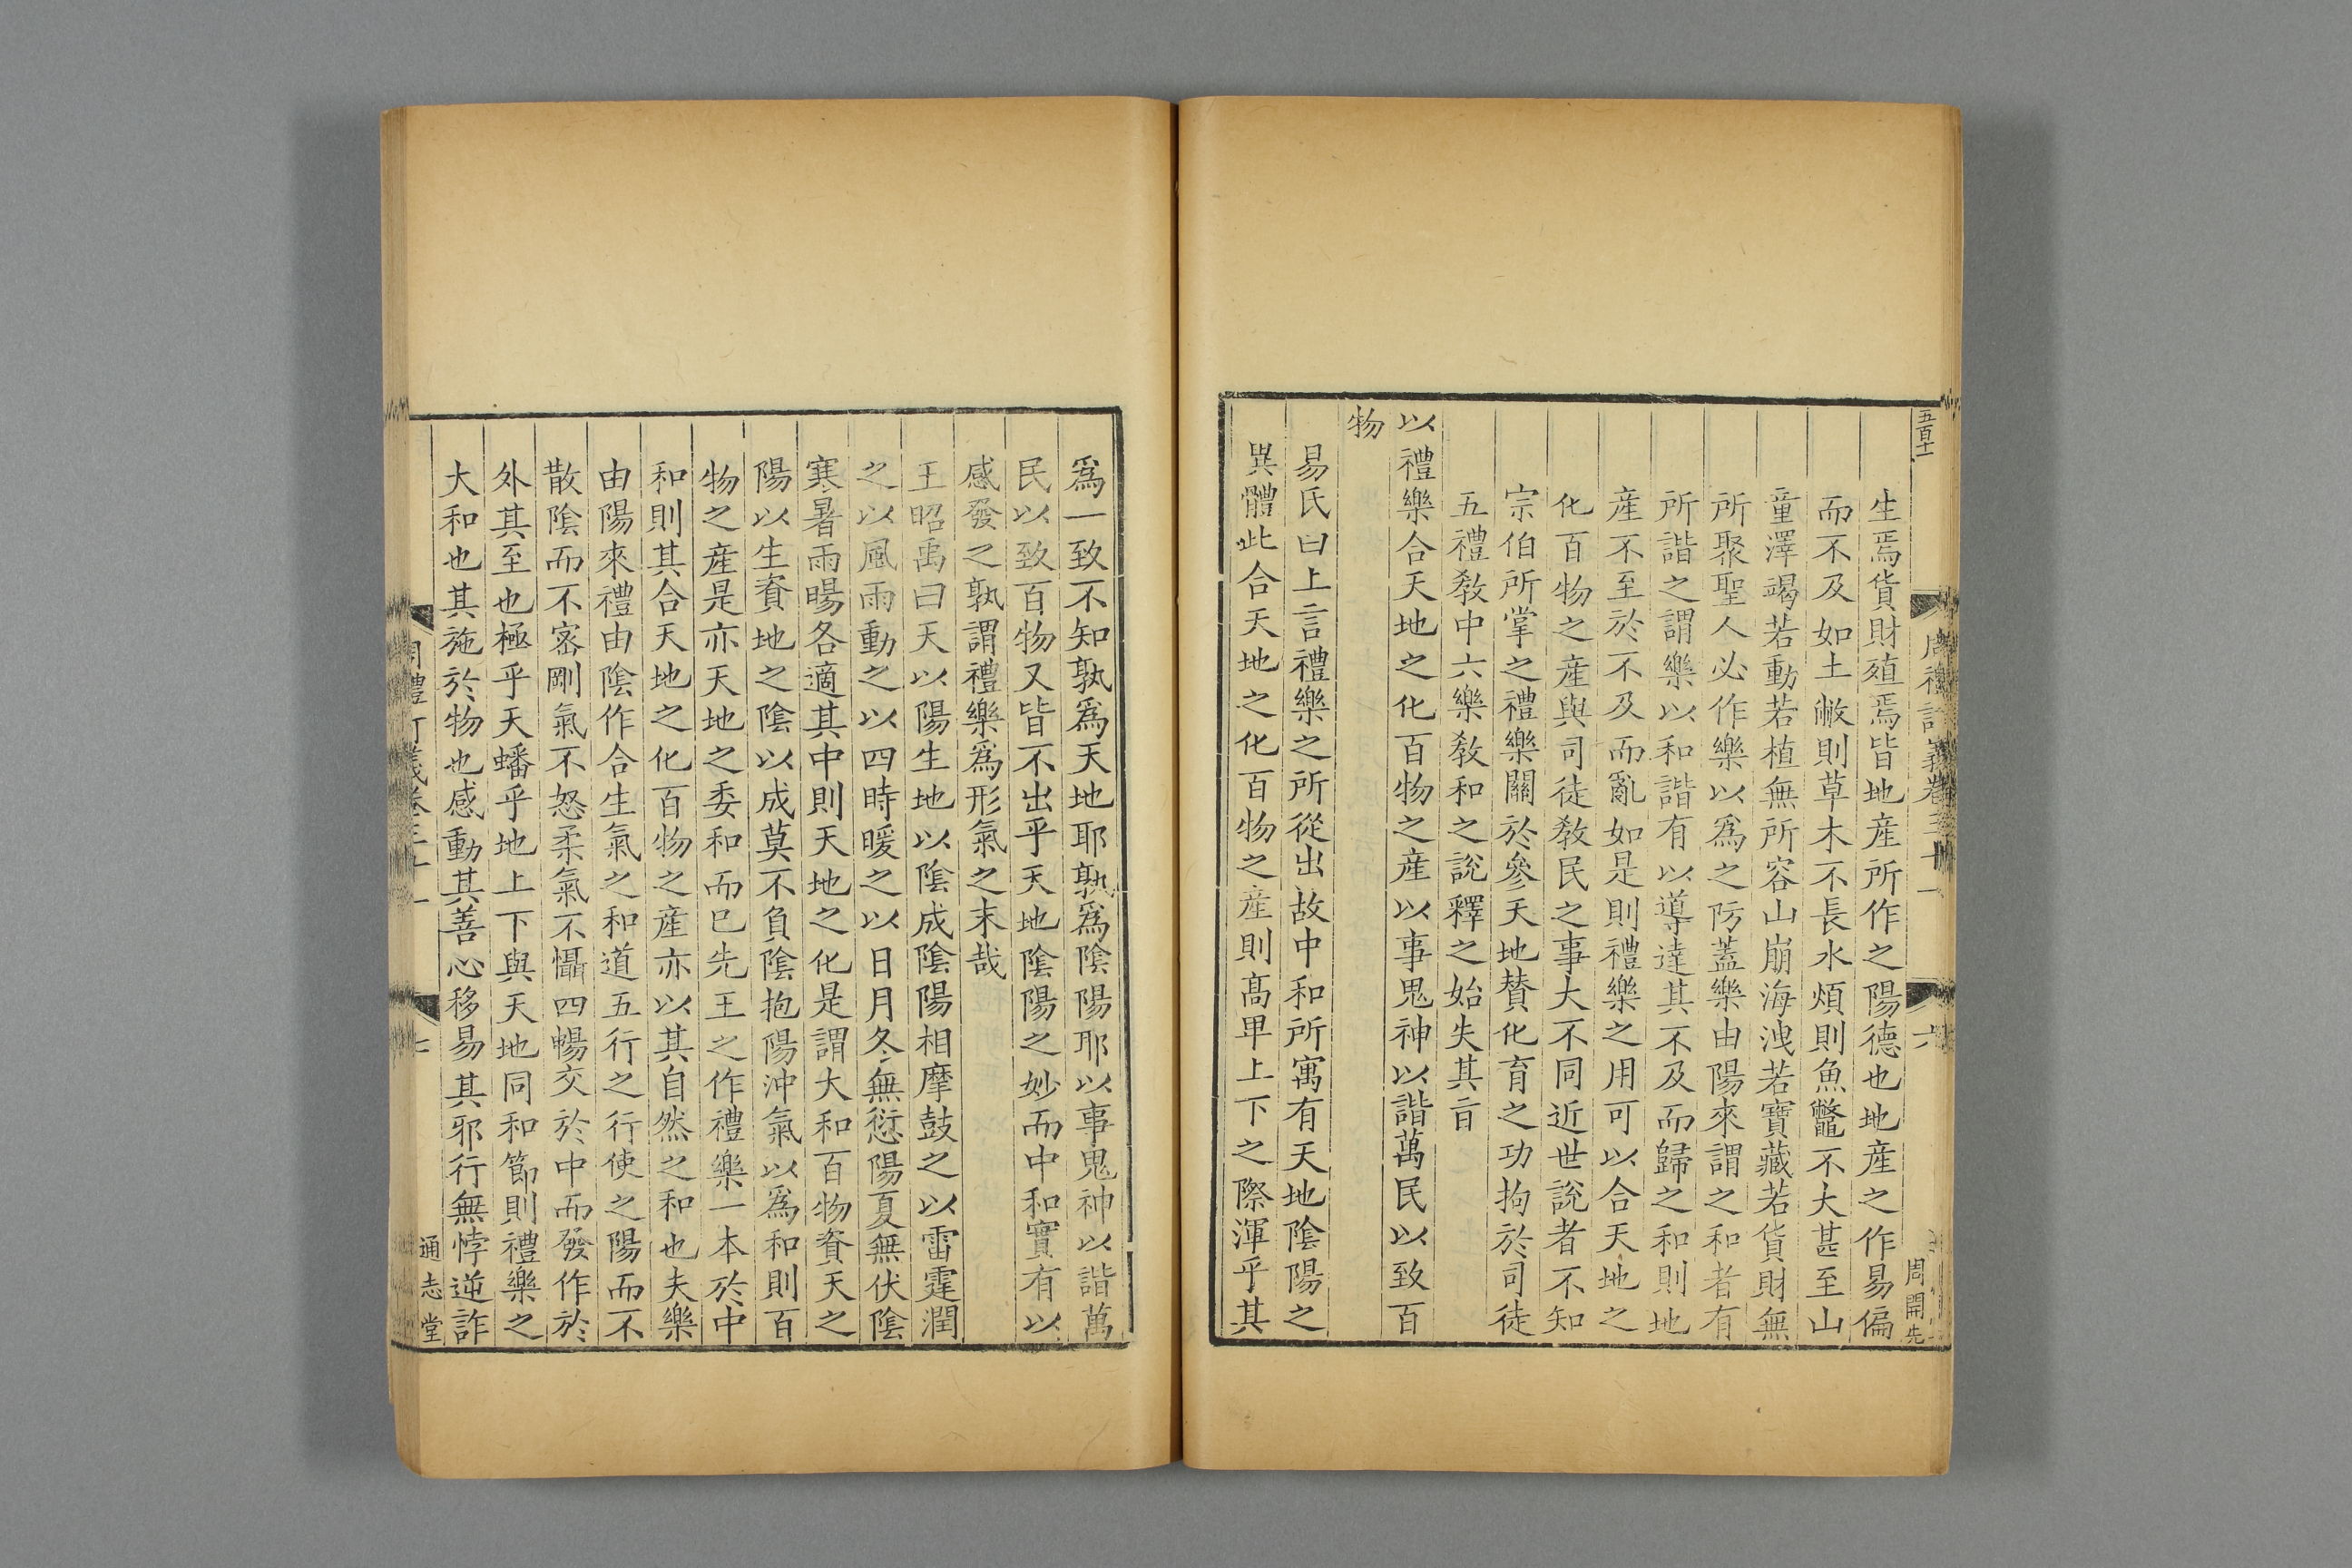 五百十一
周禮訂義卷三十一
六
周開先
生焉貨財殖焉皆地産所作之陽德也地産之作易偏
而不及如土敝則草木不長水煩則魚鼈不大甚至山
童澤竭若動若植無所容山崩海洩若寶藏若貨財無
所聚聖人必作樂以爲之防蓋樂由陽來謂之和者有
所諧之謂樂以和諧有以導達其不及而歸之和則地
産不至於不及而亂如是則禮樂之用可以合天地之
化百物之産與司徒敎民之事大不同近世說者不知
宗伯所掌之禮樂關於參天地賛化育之功拘於司徒
五禮敎中六樂敎和之說釋之始失其㫖
以禮樂合天地之化百物之産以事鬼神以諧萬民以致百
物
易氏曰上言禮樂之所從出故中和所寓有天地陰陽之
異體此合天地之化百物之産則髙卑上下之際渾乎其
爲一致不知孰爲天地耶孰爲陰陽耶以事鬼神以諧萬
民以致百物又皆不出乎天地陰陽之妙而中和實有以
感發之孰謂禮樂爲形氣之末哉
王昭禹曰天以陽生地以陰成陰陽相摩鼓之以雷霆潤
之以風雨動之以四時暖之以日月冬無愆陽夏無伏陰
寒暑雨暘各適其中則天地之化是謂大和百物資天之
陽以生資地之陰以成莫不負陰抱陽沖氣以爲和則百
物之産是亦天地之委和而已先王之作禮樂一本於中
和則其合天地之化百物之産亦以其自然之和也夫樂
由陽來禮由陰作合生氣之和道五行之行使之陽而不
散陰而不宻剛氣不怒柔氣不懾四暢交於中而發作於
外其至也極乎天蟠乎地上下與天地同和節則禮樂之
大和也其施於物也感動其善心移易其邪行無悖逆詐
周禮訂義卷三十一
七
通志堂